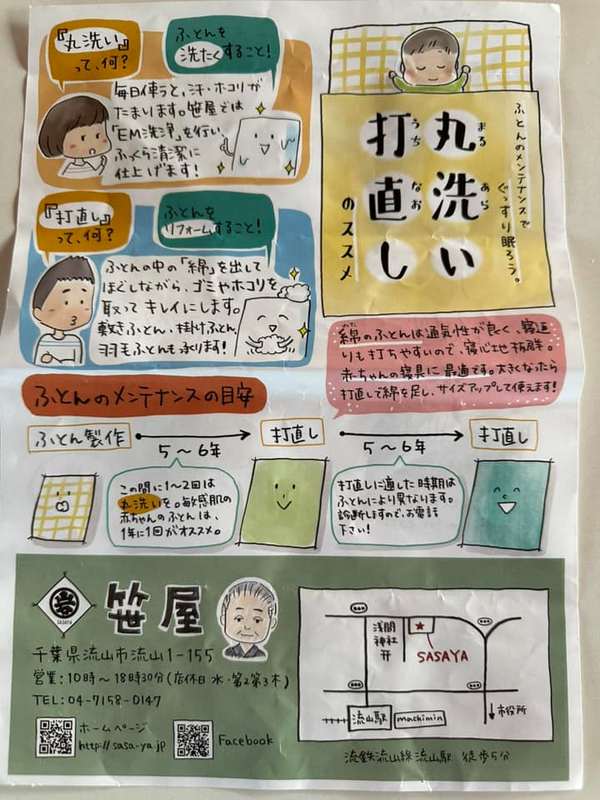 『丸洗い』
って、何?
ふとんを
洗たくすること!
毎日使うと、汗・ホコリが
たまります。笹屋では
「EM洗浄」を行い、
ふっくら清潔に
仕上げます!
『打直し』
って、何?
ふとんを
リフォームすること!
ふとんの中の「綿」を出して
ほぐしながら、ゴミやホコリを
取ってキレイにします。
敷きふとん、掛けふとん、
羽毛ふとんも承ります!
ふとんのメンテナンスで
ぐっすり眠ろう。
丸洗い
まる あら
打直し
うち なお
のススメ
綿のふとんは通気性が良く、寝返
わた
りも打ちやすいので、寝心地抜群。
赤ちゃんの寝具に最適です。大きくなったら
打直しで綿を足し、サイズアップして使えます!
ふとんのメンテナンスの目安
ふとん製作
5~6年
打直し
5~6年
打直し
この間に1~2回は
丸洗いを。敏感肌の
赤ちゃんのふとんは、
1年に1回がオススメ。
打直しに適した時期は
ふとんにより異なります。
診断しますので、お電話
下さい!
SASAYA
笹屋
千葉県流山市流山1-155
営業:10時~18時30分(店休日 水・第2第3木)
TEL:04-7158-0147
ホームページ
http://sasa-ya.jp
Facebook
浅間
神社
⛩
SASAYA
流山駅
machimin
市役所
流鉄流山線流山駅 徒歩5分